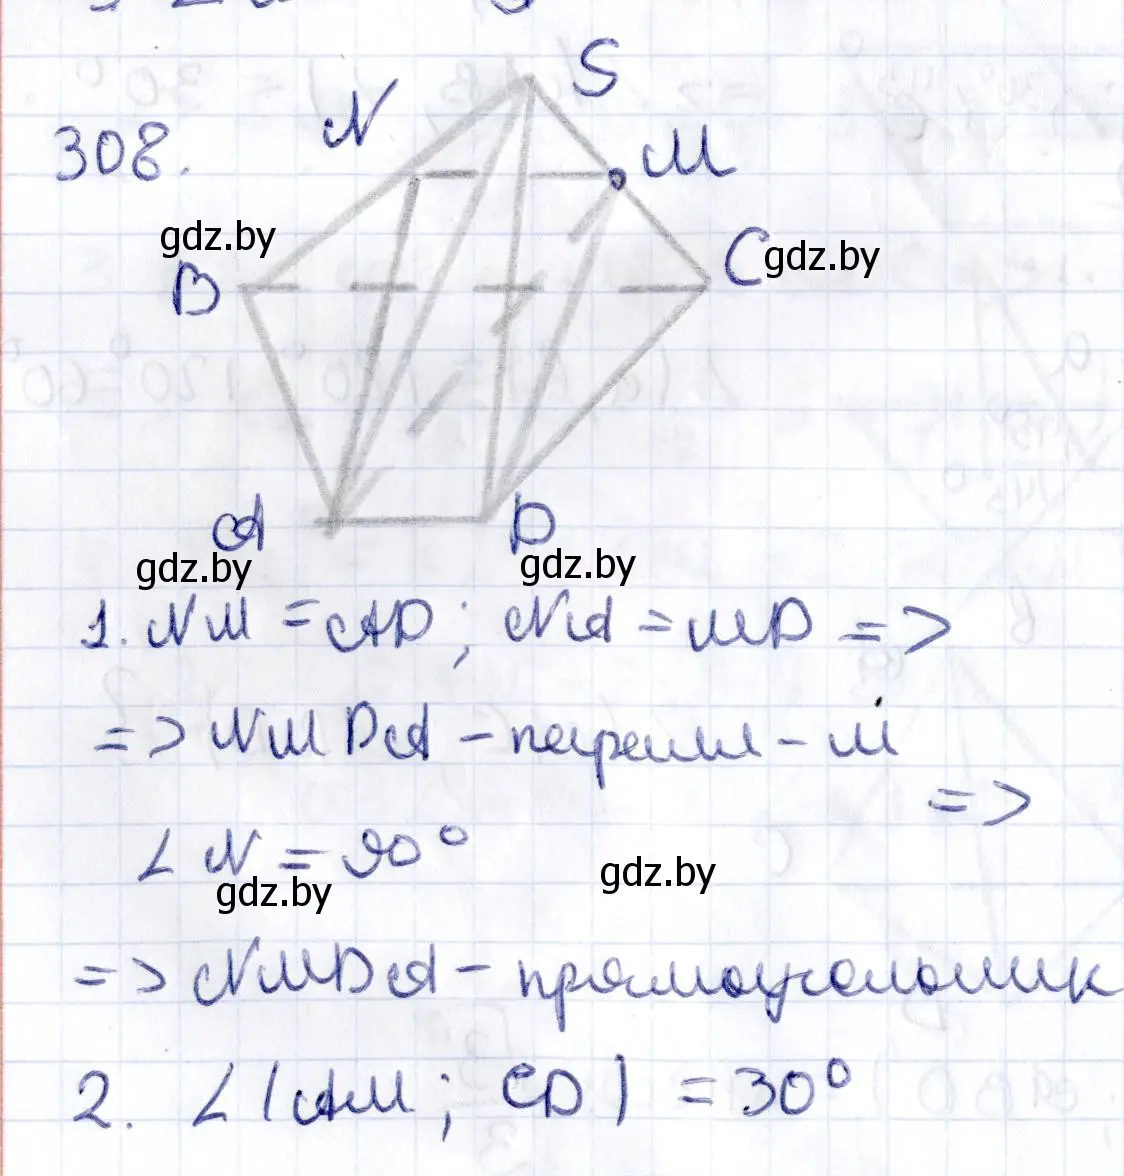 308.
N
S
M
B
C
A
D
gdz.by
gdz.by
gdz.by
gdz.by
1. NM = AD; NA = MD =>
=> NMDA - паралл-м
∠N = 90° =>
gdz.by
gdz.by
=> NMDA - прямоугольник
2. ∠(AM; CD) = 30°